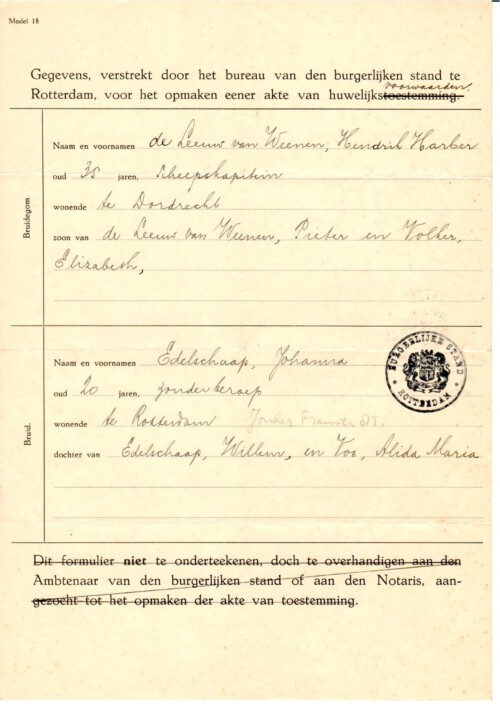 Model 18
Gegevens, verstrekt door het bureau van den burgerlijken stand te
voorwaarden.
Rotterdam, voor het opmaken eener akte van huwelijkstoestemming.
Bruidegom.
Naam en voornamen de Leeuw van Weenen, Hendrik Harber
oud 35 jaren, Scheepskapitein
wonende te Dordrecht
zoon van de Leeuw van Weenen, Pieter en Volker,
Elizabeth,
BURGERLIJKE STAND
ROTTERDAM
Bruid.
Naam en voornamen Edelschaap, Johanna
oud 20 jaren, zonder beroep
wonende te Rotterdam Jonker
dochter van Edelschaap, Willem, en Vos, Alida Maria
Dit formulier niet te onderteekenen, doch te overhandigen aan den
Ambtenaar van den burgerlijken stand of aan den Notaris, aan-
gezocht tot het opmaken der akte van toestemming.